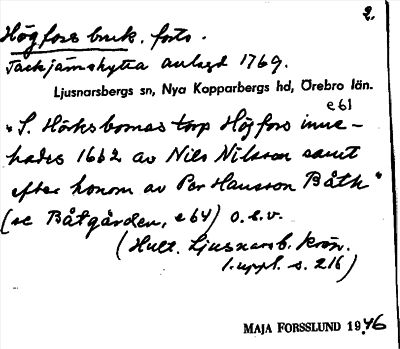 2.
Högfors bruk. forts.
Tackjärnshytta anlagd 1769.
Ljusnarsbergs sn, Nya Kopparbergs hd, Örebro län.
e61
"S. Hörksbornas torp Högfors inne-
hades 1662 av Nils Nilsson samt
efter honom av Per Hansson Båth"
(se Båtgården, e64) o.s.v.
(Hult. Ljusnarsb. krön.
1. uppl. s. 216)
MAJA FORSSLUND 1946